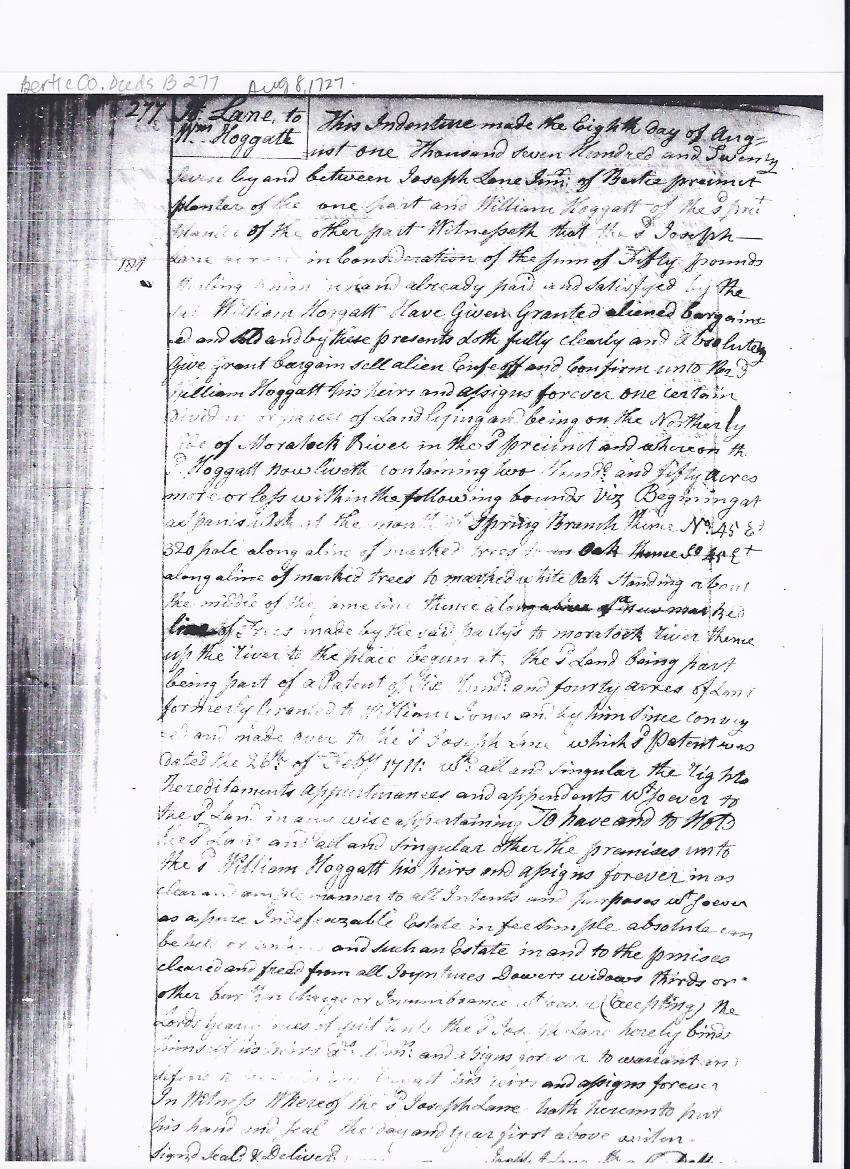 Bertie Co. Deeds B 277 Aug 8, 1727.
277
Js. Lane, to
Wm. Hoggatt
This Indenture made the Eighth day of Aug=
ust one Thousand seven Hundred and Twenty
Seven by and between Joseph Lane Junr. of Bertie precinct
planter of the one part and William Hoggatt of the sd prect
planter of the other part Witnesseth that the sd Joseph—
Lane in Consideration of the sum of Fifty pounds
in hand already paid and satisfyed by the
William Hoggatt Have Given Granted aliened bargain=
ed and Sold and by these presents doth fully clearly and Absolutely
Give Grant bargain sell alien Enfeoff and Confirm unto the sd
William Hoggatt his heirs and assigns forever one certain
or parcel of Land lying and being on the Northerly
side of Moratock River in the sd precinct and whereon th
sd Hoggatt now liveth containing two Hundd. and fifty Acres
more or less within the following bounds Viz Begining at
a at the mouth of Spring Branch thence No. 45 Et
320 pole along a line of marked trees to an Oak thence So 45 Et
along a line of marked trees to marked white Oak Standing about
the middle of the same line thence along a new marked
line of Trees made by the said partys to moratock River thence
up the River to the place begun at, the sd Land being part
being part of a Patent of Six Hundd. and fourty acres of Land
formerly Granted to William Jones and by him Since convey
ed and made over to the sd Joseph Lane which sd Patent was
dated the 26th. of Febry 1711: wth. all and singular the rights
hereditaments appurtenances and appendents wtsoever to
the sd Land in any wise appertaining To have and to Hold
the sd Land and all and Singular other the premises unto
the sd William Hoggatt his heirs and assigns forever in as
clear and ample manner to all Intents and purposes wtsoever
as a pure Indefeazable Estate in feesimple absolute can
be held or and such an Estate in and to the pmises
cleared and freed from all Joyntures Dowers widows thirds or
other Charge or Incumbrance wtsoever (Excepting) the
Lords yearly dues of quit rents the sd Joseph Lane hereby binds
himself his heirs and assigns forever to warrant and
defend Hoggatt his heirs and assigns forever
In Witness Whereof the sd Joseph Lane hath hereunto put
his hand and seal the day and year first above written—
Signd Seald & Deliverd